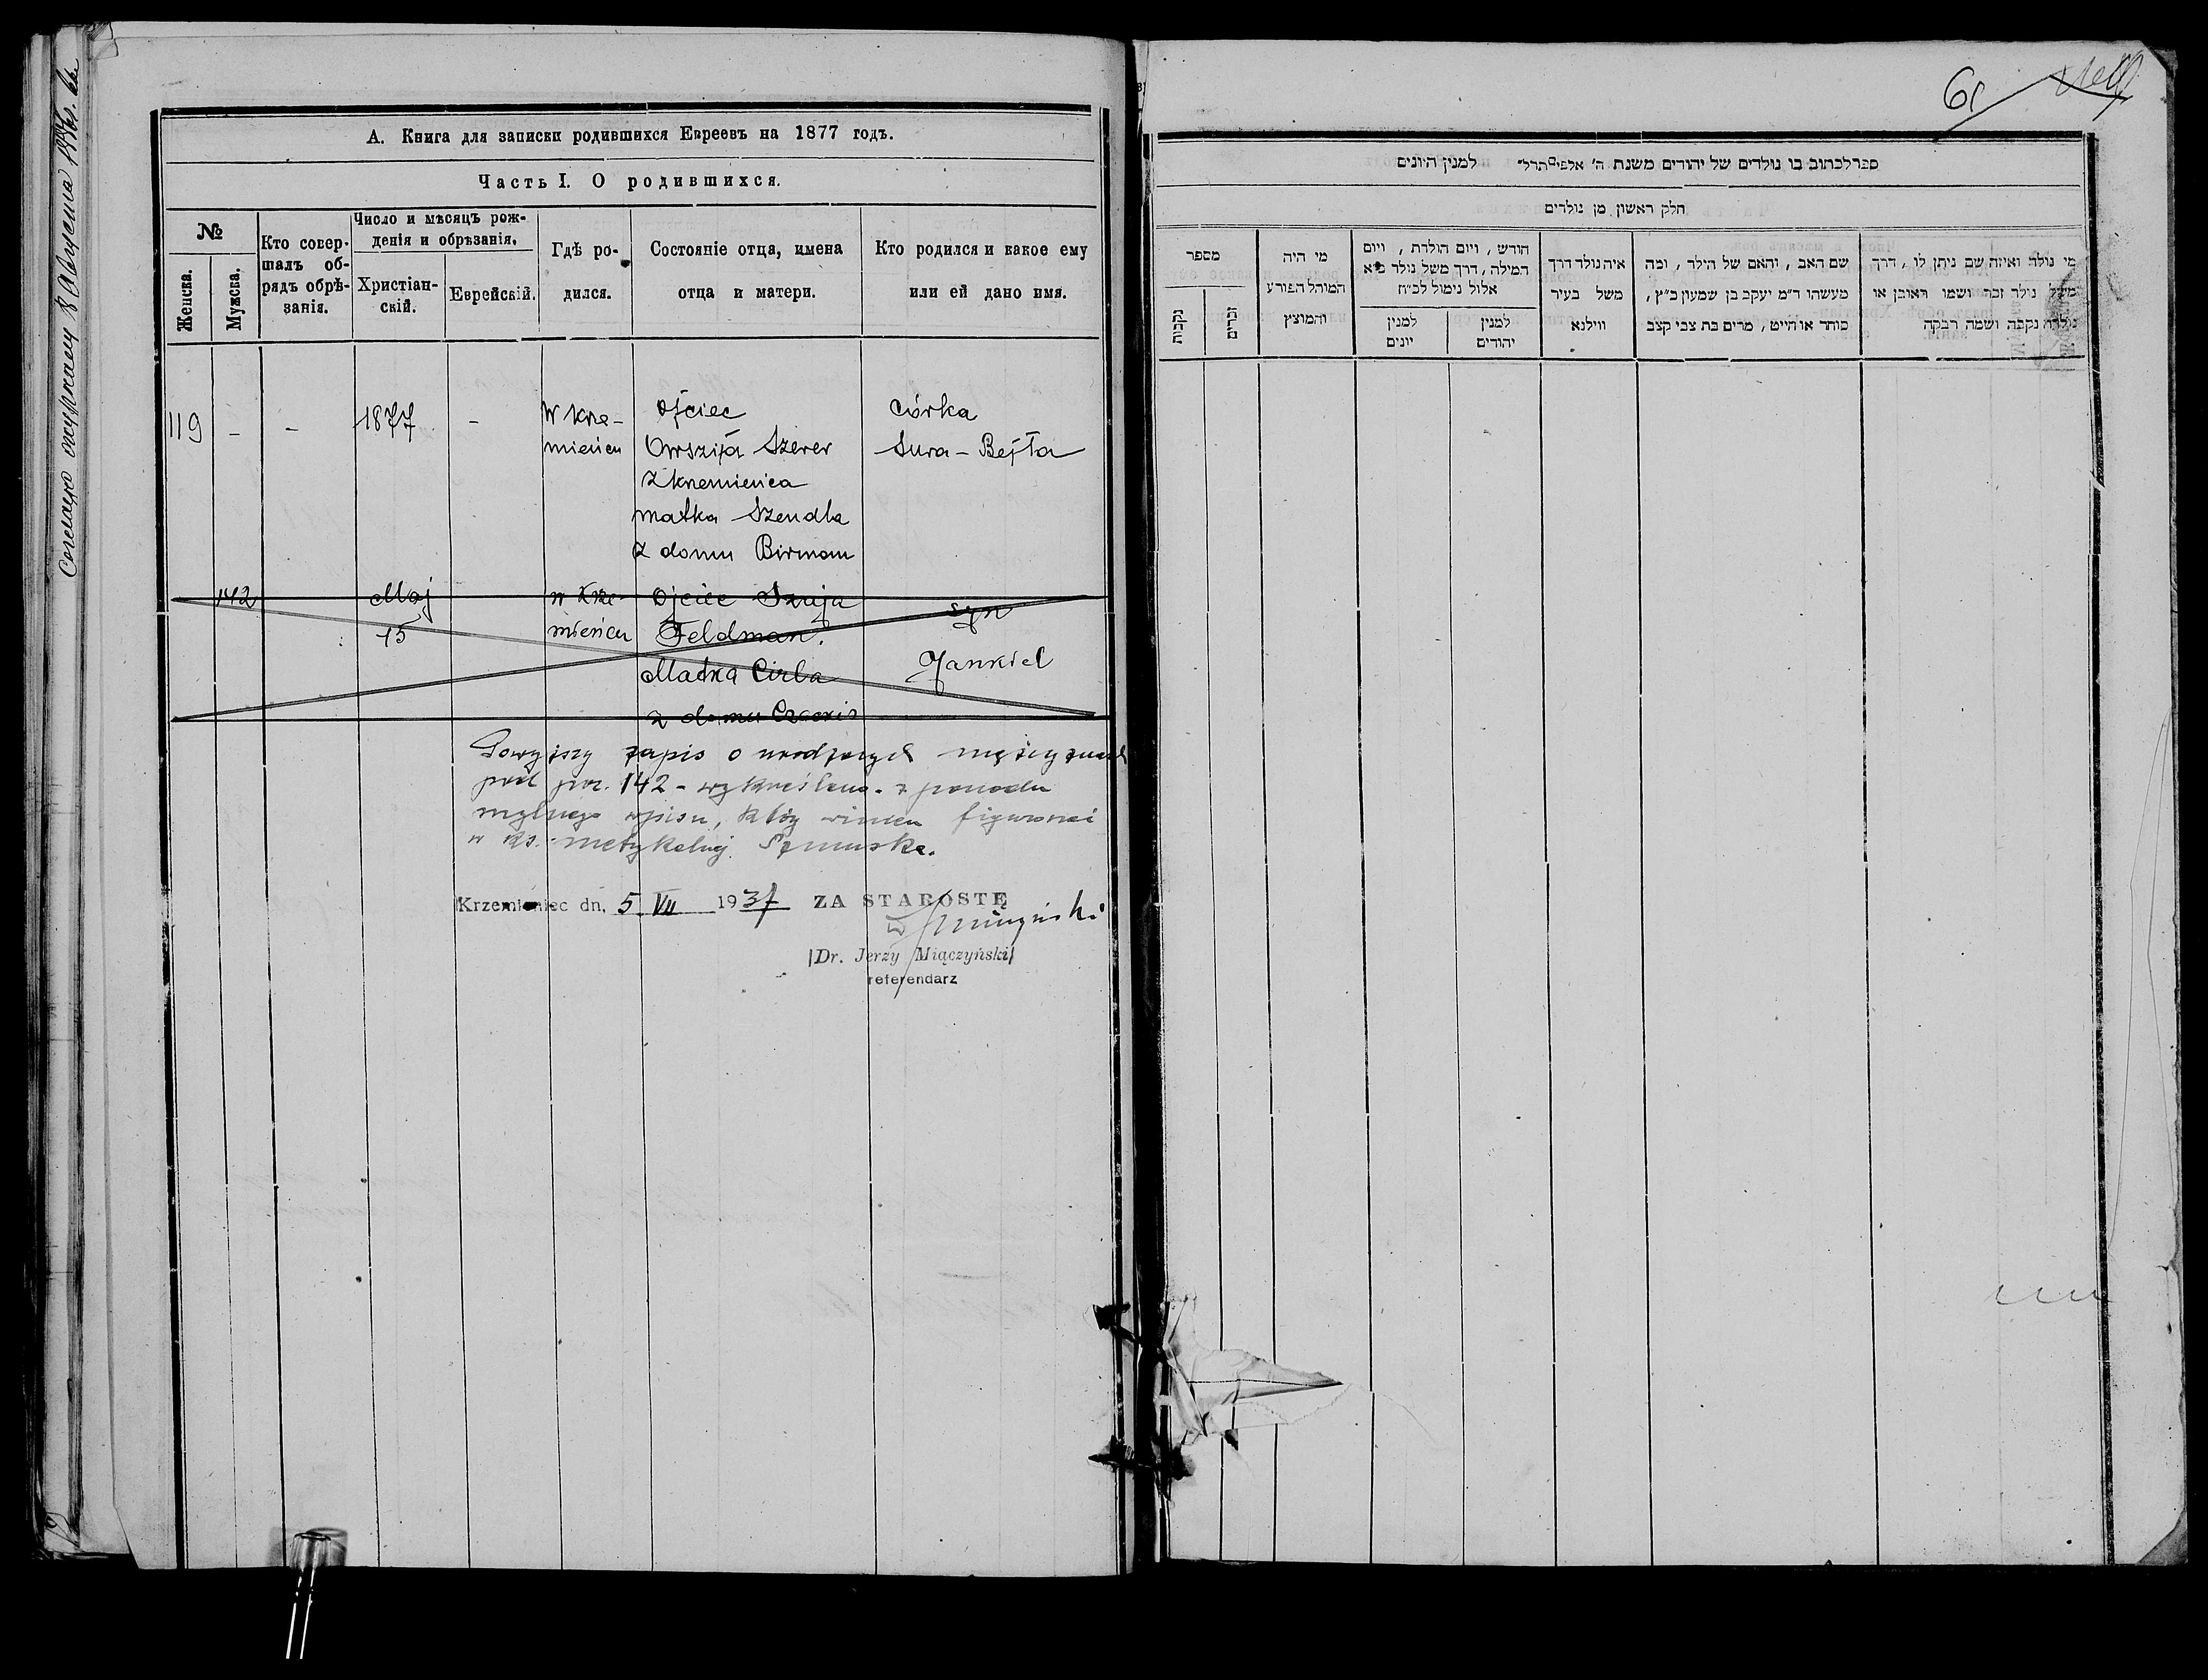 А. Книга для записки родившихся Евреевъ на 1877 годъ.
Часть I. О родившихся.
№
Женска.
Мужска.
Кто совер-
шалъ об-
рядъ обрѣ-
занія.
Число и мѣсяцъ рож-
денія и обрѣзанія.
Христіан-
скій.
Еврейскій.
Гдѣ ро-
дился.
Состояніе отца, имена
отца и матери.
Кто родился и какое ему
или ей дано имя.
119
-
-
1877
-
W Krze-
mieńcu
Ojciec
Owszija Szerer
z Krzemieńca
matka Szendla
z domu Birman
Córka
Sura - Bejła
142
Maj
15
w Krze-
mieńcu
Ojciec Szaja
Feldman.
Matka Cirla
z domu
syn
Jankiel
Powyższy zapis o urodzonych mężczyznach
pod poz. 142 - wykreślono - z powodu
mylnego wpisu, który winien figurować
w ks. metrykalnej
Krzemieniec dn. 5 VII 1937
ZA STAROSTĘ
(Dr. Jerzy Miączyński)
referendarz
61
ספר לכתוב בו נולדים של יהודים משנת ה' אלפים תרל" למנין היונים
חלק ראשון מן נולדים
מספר
נקבות
זכרים
מי היה
המוהל הפורע
והמוצץ
חודש, ויום הולדת, ויום
המילה, דרך משל נולד כ"א
אלול נימול לכ"ח
למנין
יונים
למנין
יהודים
איה נולד דרך
משל בעיר
ווילנא
שם האב, והאם של הילד, ומה
מעשהו ד"מ יעקב בן שמעון כ"ץ,
סוחר או חייט, מרים בת צבי קצב
מי נולד ואיזה שם ניתן לו, דרך
משל נולד זכר ושמו ראובן או
נולדה נקבה ושמה רבקה